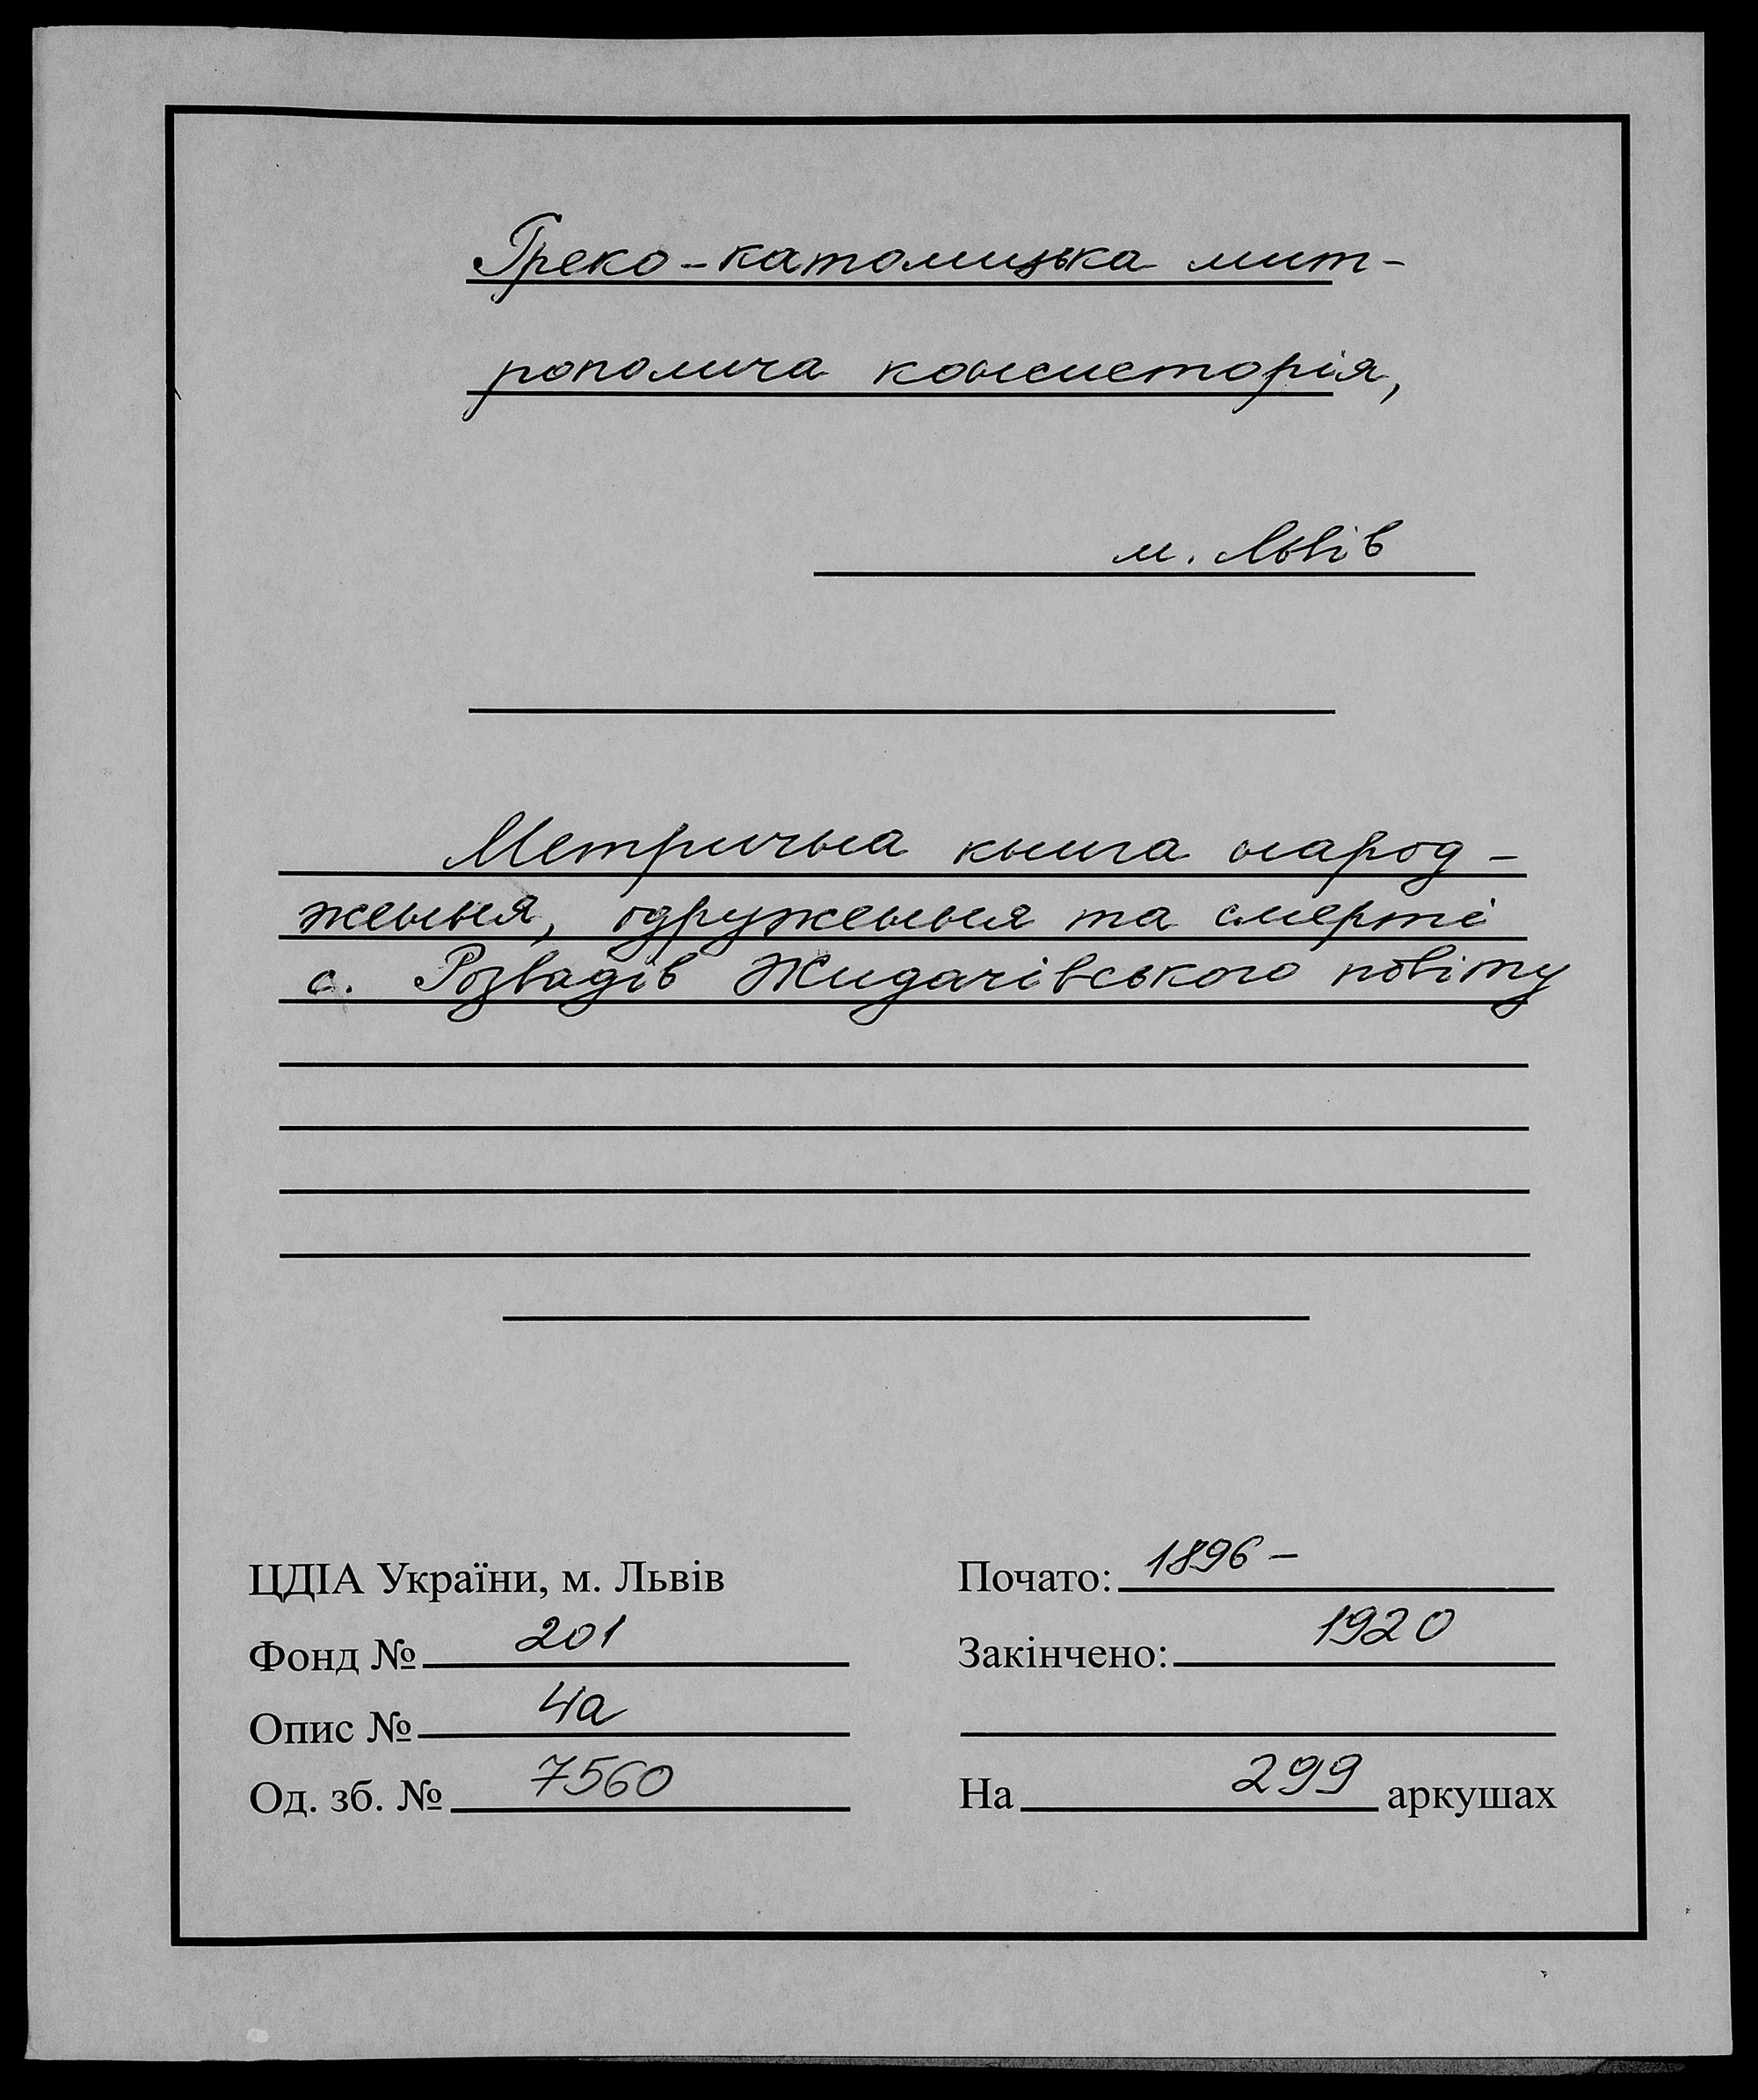 Греко-католицька мит-
рополича консисторія,
м. Львів
Метрична книга народ-
ження, одруження та смерті
с. Розвадів Жидачівського повіту
ЦДІА України, м. Львів
Фонд № 201
Опис № 4а
Од. зб. № 7560
Почато: 1896 -
Закінчено: 1920
На 299 аркушах